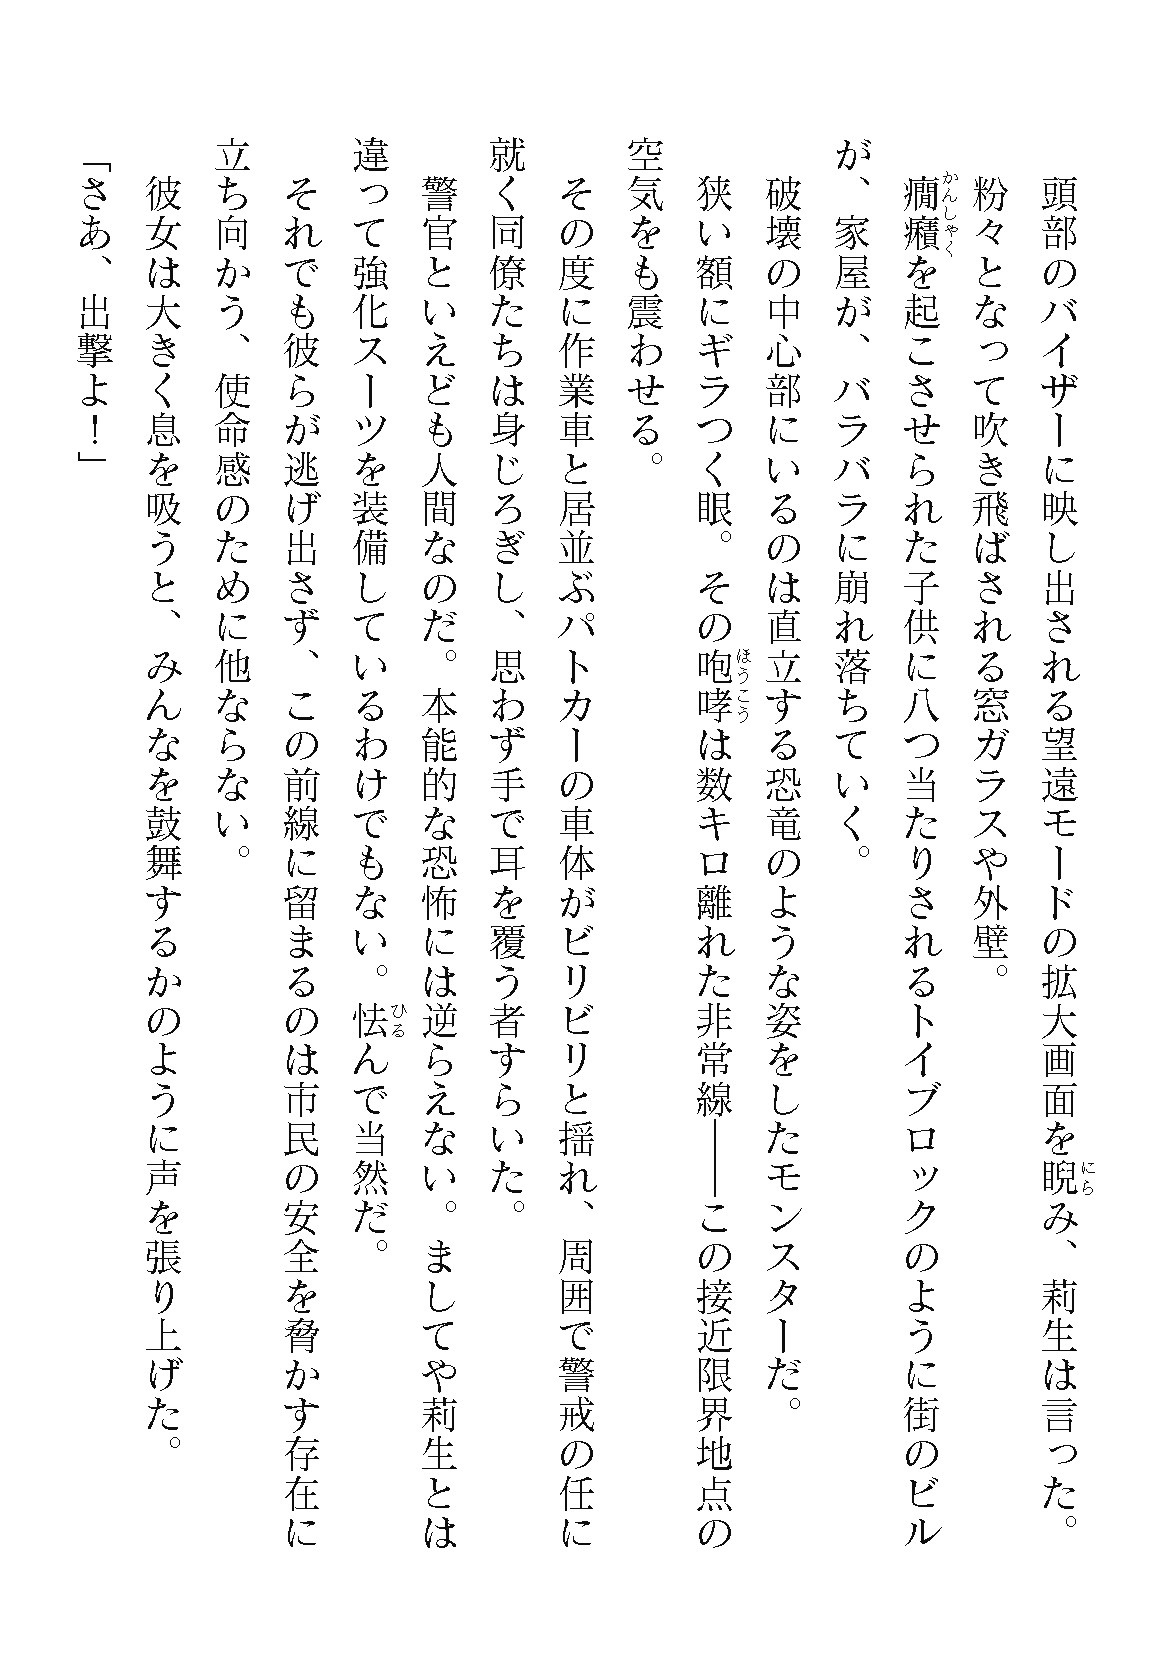 頭部のバイザーに映し出される望遠モードの拡大画面を睨み、莉生は言った。
　粉々となって吹き飛ばされる窓ガラスや外壁。
　癇癪を起こさせられた子供に八つ当たりされるトイブロックのように街のビル
が、家屋が、バラバラに崩れ落ちていく。
　破壊の中心部にいるのは直立する恐竜のような姿をしたモンスターだ。
　狭い額にギラつく眼。その咆哮は数キロ離れた非常線――この接近限界地点の
空気をも震わせる。
　その度に作業車と居並ぶパトカーの車体がビリビリと揺れ、周囲で警戒の任に
就く同僚たちは身じろぎし、思わず手で耳を覆う者すらいた。
　警官といえども人間なのだ。本能的な恐怖には逆らえない。ましてや莉生とは
違って強化スーツを装備しているわけでもない。怯んで当然だ。
　それでも彼らが逃げ出さず、この前線に留まるのは市民の安全を脅かす存在に
立ち向かう、使命感のために他ならない。
　彼女は大きく息を吸うと、みんなを鼓舞するかのように声を張り上げた。
「さあ、出撃よ！」